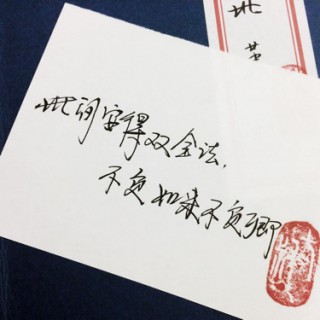 世间安得双全法，
不负如来不负卿